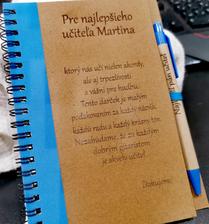 Pre najlepšieho
učiteľa Martina
ktorý nás učí nielen akordy,
ale aj trpezlivosti
a vášni pre hudbu.
Tento darček je malým
poďakovaním za každý nácvik,
každú radu a každý krásny tón.
Nezabúdame, že za každým
dobrým gitaristom
je skvelý učiteľ.
Ďakujeme.